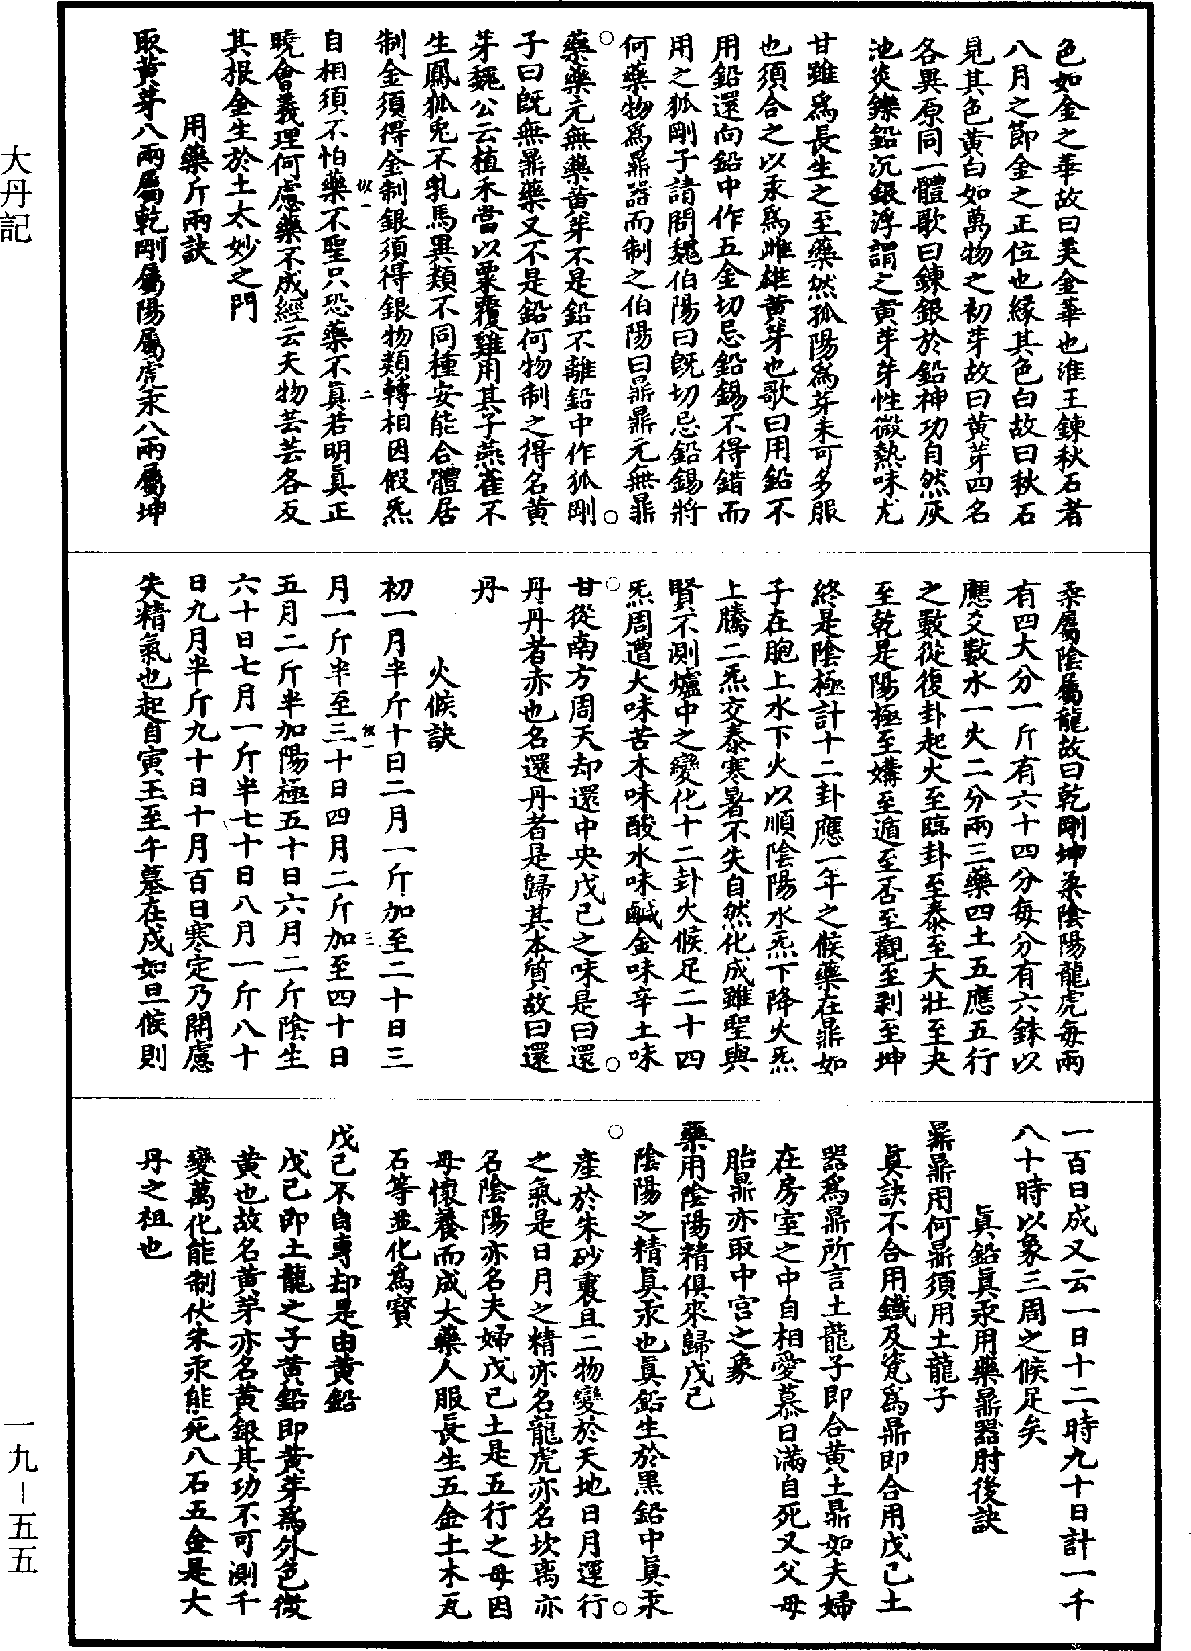 色如金之華故曰美金華也淮王鍊秋石者
八月之節金之正位也緣其色白故曰秋石
見其色黃白如萬物之初芽故曰黃芽四名
各異原同一體歌曰鍊銀於鉛神功自然灰
池炎鑠鉛沉銀浮謂之黃芽芽性微熱味尤
甘雖為長生之至藥然孤陽為芽未可多服
也須合之以汞為雌雄黃芽也歌曰用鉛不
用鉛還向鉛中作五金切忌鉛錫不得錯而
用之狐剛子請問魏伯陽曰既切忌鉛錫將
何藥物為鼎器而制之伯陽曰鼎鼎元無鼎
藥藥元無藥黃芽不是鉛不離鉛中作狐剛
子曰既無鼎藥又不是鉛何物制之得名黃
芽魏公云植禾當以粟覆雞用其子燕雀不
生鳳狐兎不乳馬異類不同種安能合體居
制金須得金制銀須得銀物類轉相因假炁
自相須不怕藥不聖只恐藥不真若明真正
曉會義理何慮藥不成經云夫物芸芸各反
其根金生於土太妙之門
用藥斤兩訣
取黃芽八兩屬乾剛屬陽屬虎汞八兩屬坤
柔屬陰屬龍故曰乾剛坤柔陰陽龍虎每兩
有四大分一斤有六十四分每分有六銖以
應爻數水一火二分兩三藥四土五應五行
之數從復卦起火至臨卦至泰至大壯至夬
至乾是陽極至姤至遁至否至觀至剥至坤
終是陰極計十二卦應一年之候藥在鼎如
子在胞上水下火以順陰陽水炁下降火炁
上騰二炁交泰寒暑不失自然化成雖聖與
賢不測爐中之變化十二卦火候足二十四
炁周遭火味苦木味酸水味鹹金味辛土味
甘從南方周天却還中央戊己之味是曰還
丹丹者赤也名還丹者是歸其本質故曰還
丹
火候訣
初一月半斤十日二月一斤加至二十日三
月一斤半至三十日四月二斤加至四十日
五月二斤半加陽極五十日六月二斤陰生
六十日七月一斤半七十日八月一斤八十
日九月半斤九十日十月百日寒定乃開慮
失精氣也起自寅王至午墓在戌如旦候則
一百日成又云一日十二時九十日計一千
八十時以象三周之候足矣
真鉛真汞用藥鼎器肘後訣
鼎鼎用何鼎須用土龍子
真訣不合用鐵及瓷為鼎即合用戊己土
器為鼎所言土龍子即合黃土鼎如夫婦
在房室之中自相愛慕日滿自死又父母
胎鼎亦取中宮之象
藥用陰陽精俱來歸戊己
陰陽之精真汞也真鉛生於黑鉛中真汞
產於朱砂裏且二物變於天地日月運行
之氣是日月之精亦名龍虎亦名坎离亦
名陰陽亦名夫婦戊己土是五行之母因
母懷養而成大藥人服長生五金土木瓦
石等並化為寳
戊己不自專却是由黃鉛
戊己即土龍之子黃鉛即黃芽為外色微
黃也故名黃芽亦名黃銀其功不可測千
變萬化能制伏朱汞能死八石五金是大
丹之祖也
大丹記
一九－五五